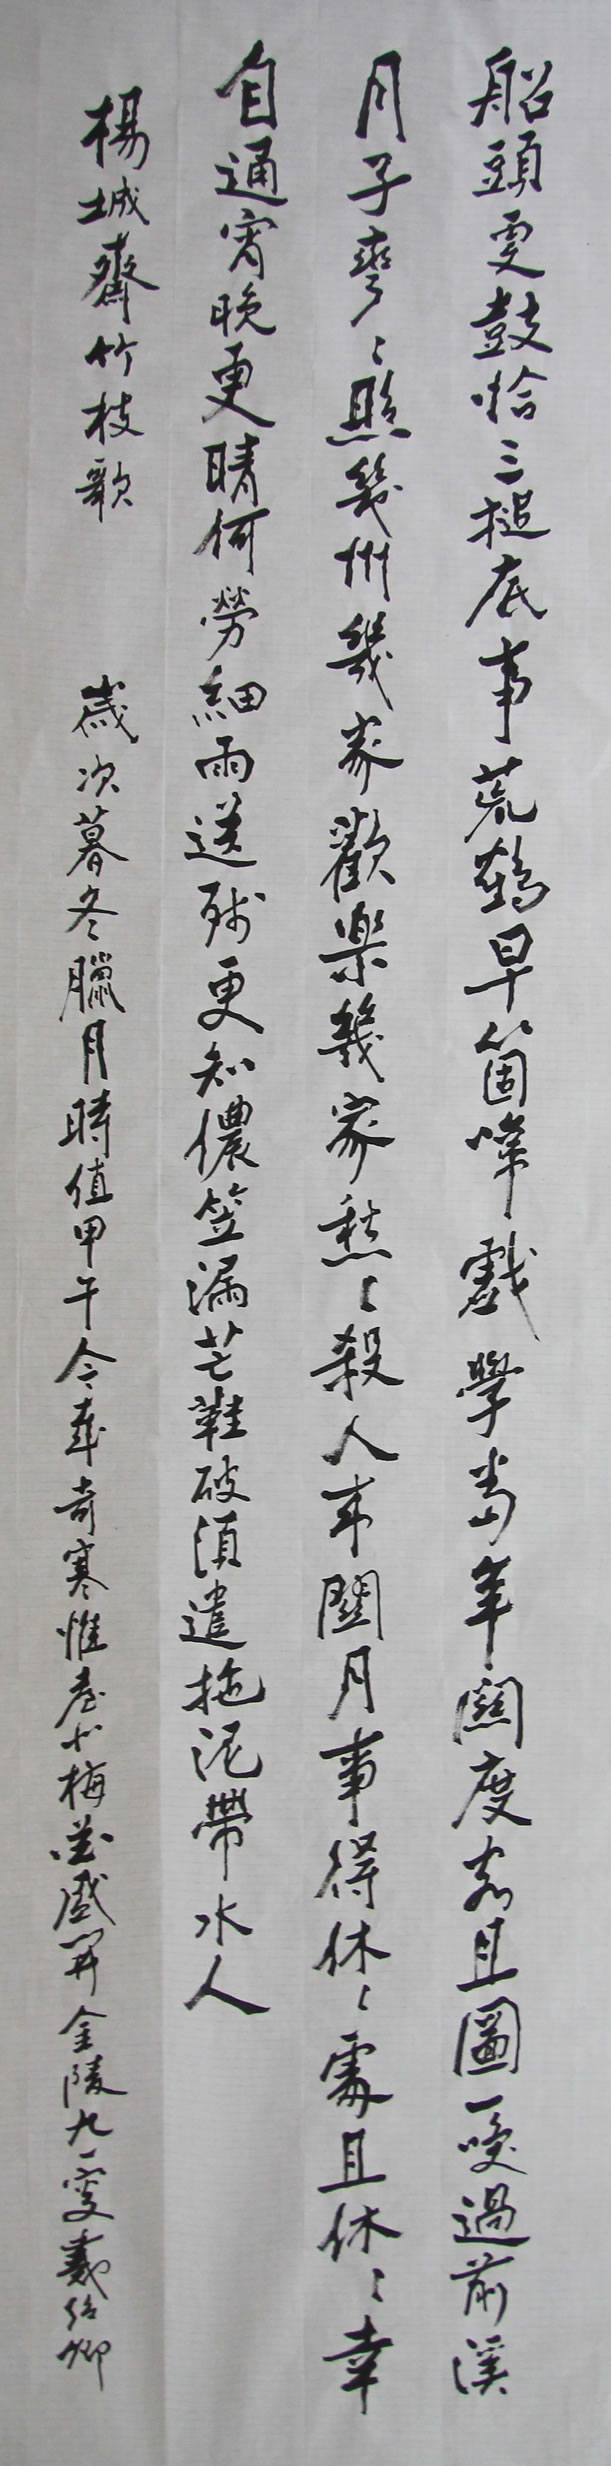 船頭更鼓恰三槌底事荒鷄早箇啼戲學當年關度客且圖一喚過前溪
月子彎〻照幾州幾家歡樂幾家愁〻殺人來關月事得休〻處且休〻幸
自通宵晚更晴何勞細雨送殘更知儂笠漏芒鞋破須遣拖泥帶水人
楊誠齋竹枝歌 歲次暮冬臘月時值甲午今歲奇寒惟老北梅並盛開金陵九一叟戴